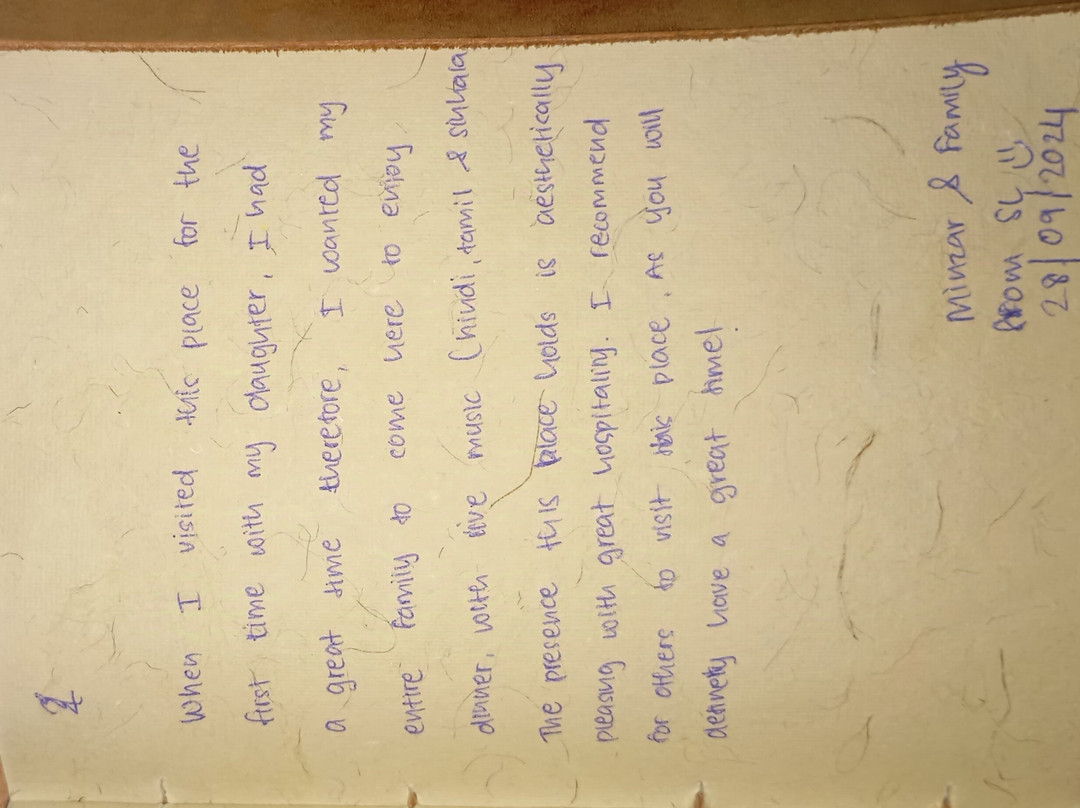 When I visited this place for the
first time with my daughter, I had
a great time therefore, I wanted my
entire family to come here to enjoy
dinner, with live music (hindi, tamil & sinhala
The presence this place holds is aesthetically
pleasing with great hospitality. I recommend
for others to visit this place. As you will
definetly have a great time!
Minzar & Family
From SL
28/09/2024